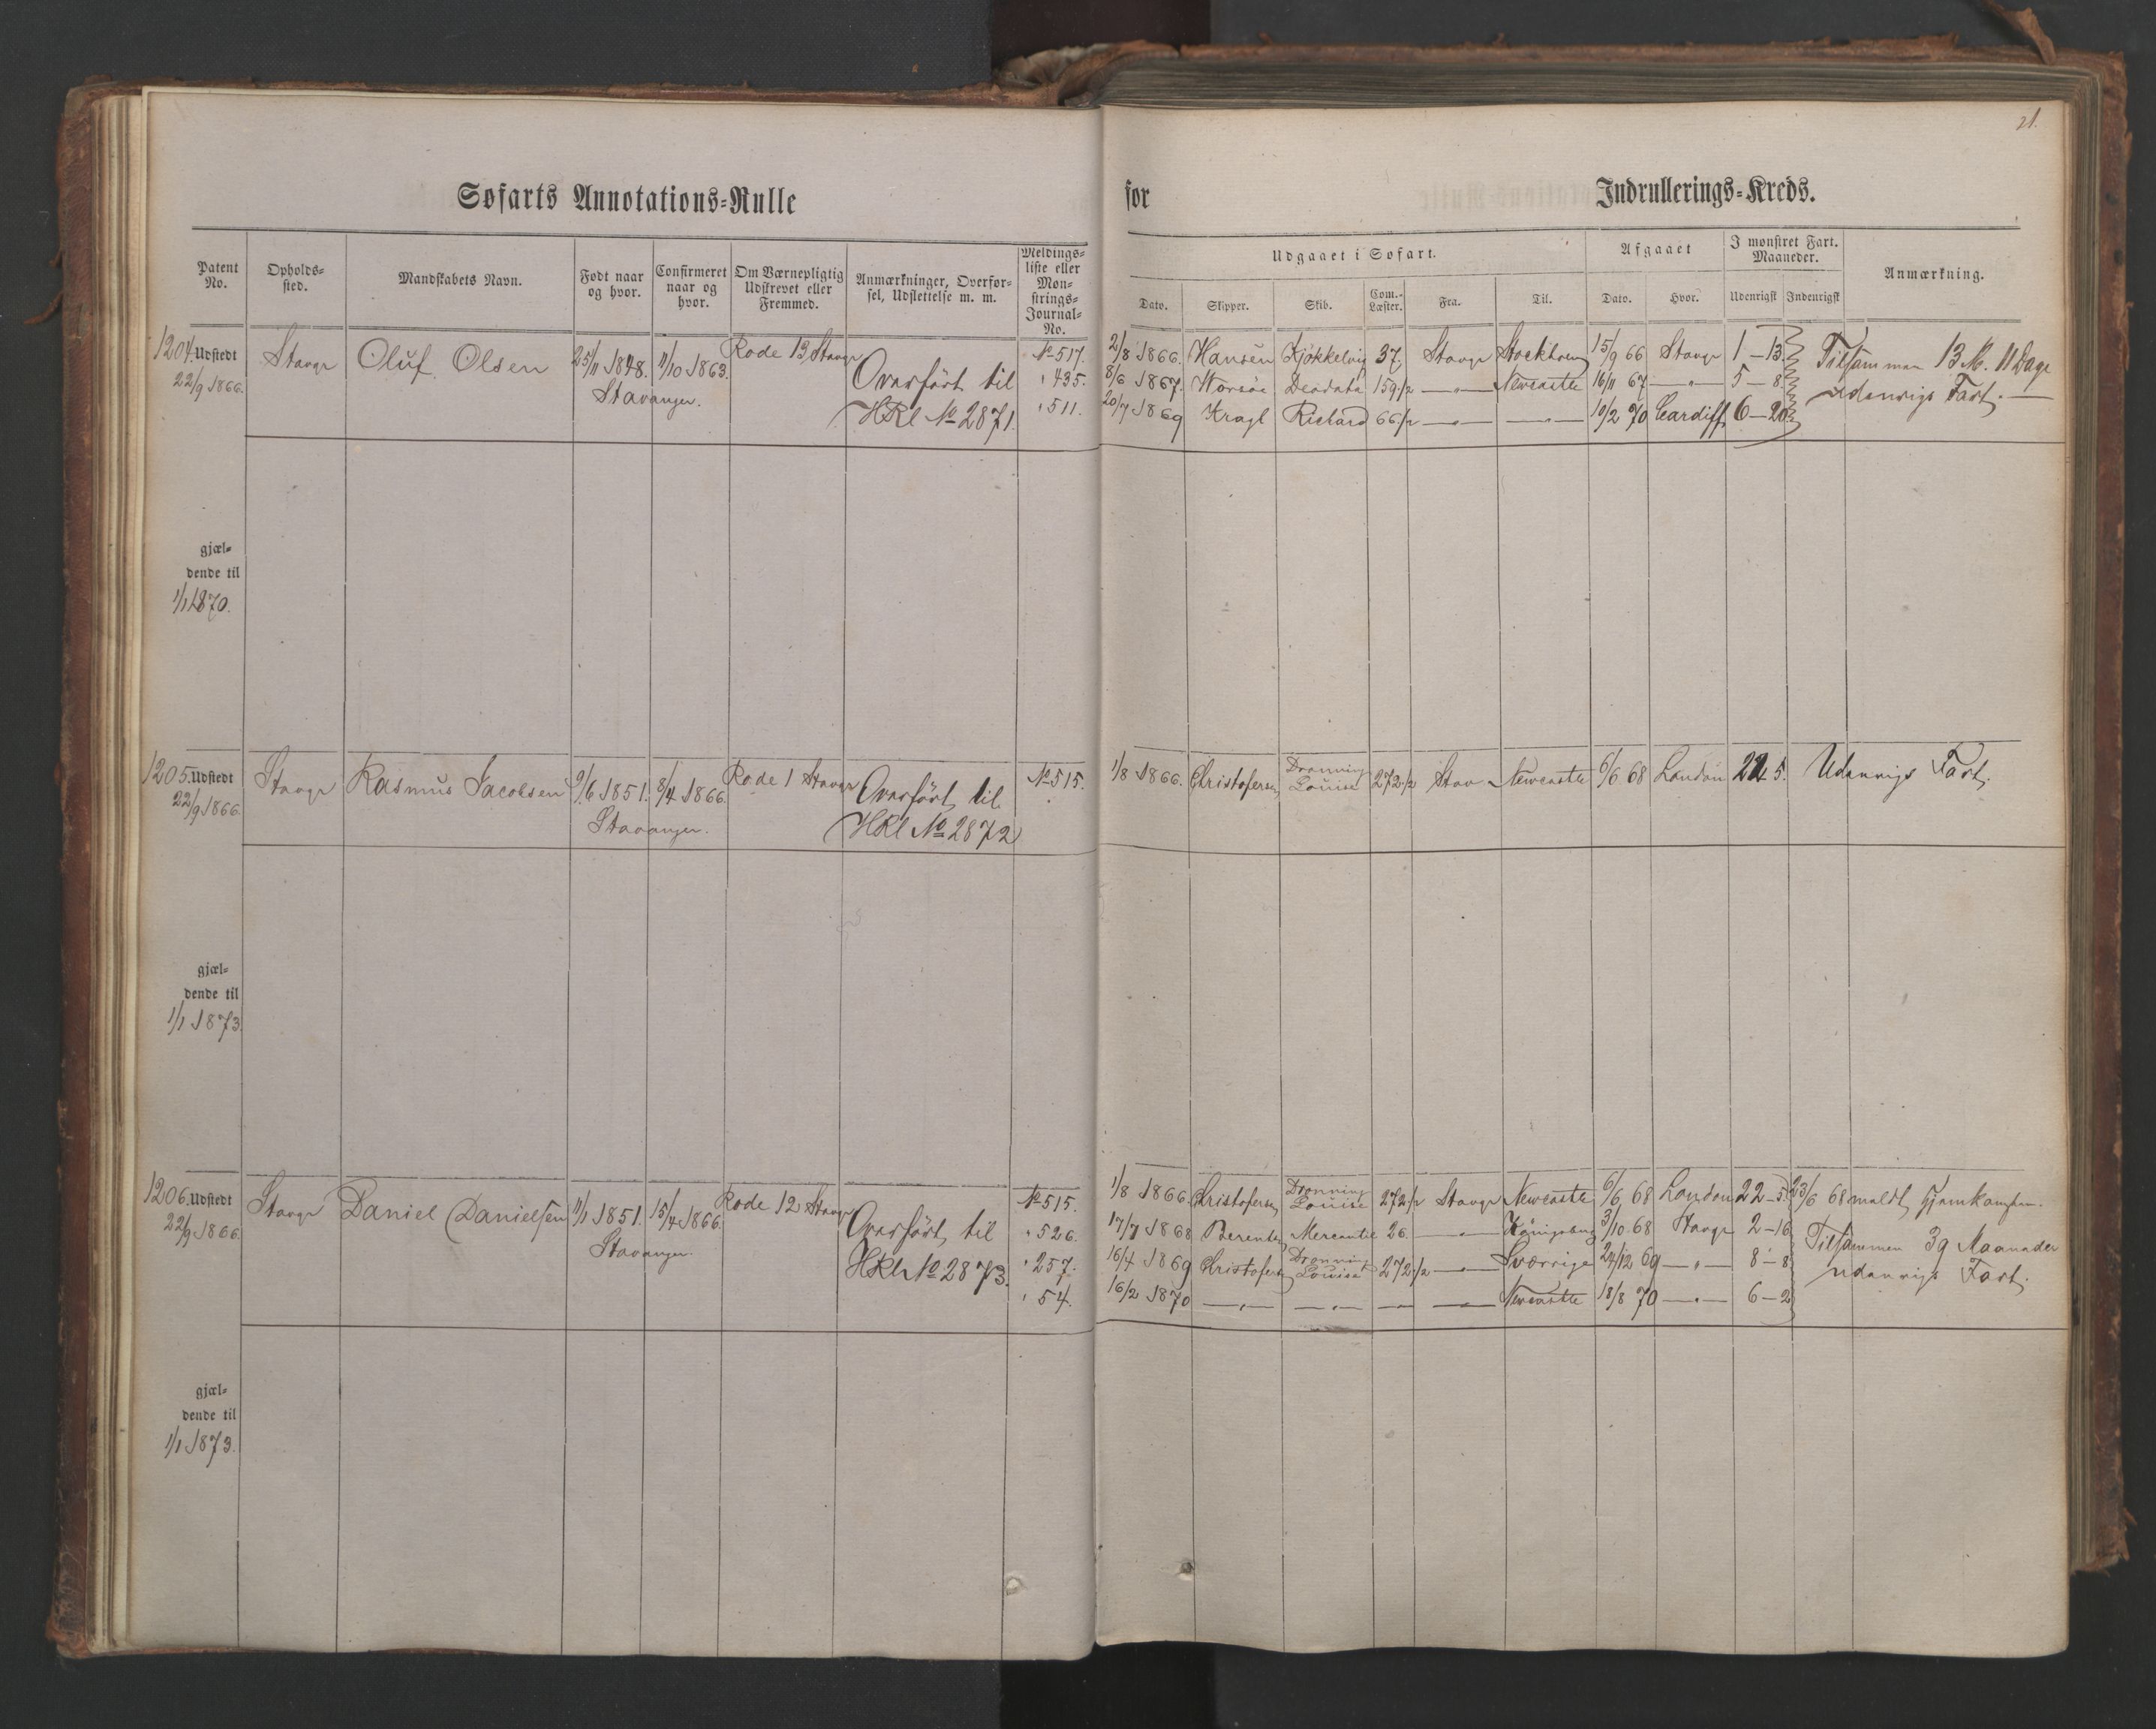 21.
Søfarts Annotations-Rulle
for Indrullerings-Kreds.
Patent No. Opholds-sted. Mandskabets Navn. Født naar og hvor. Confirmeret naar og hvor. Om Værnepligtig Udskrevet eller Fremmed. Anmærkninger, Overførsel, Udslettelse m. m. Meldings-liste eller Mønstrings-Journal-No.
Udgaaet i Søfart. Afgaaet I mønstret Fart. Maaneder. Anmærkning.
Dato. Skipper. Skib. Com.-Læster. Fra. Til. Dato. Hvor. Udenrigst Indenrigst
1204. Udstedt Stavgr Oluf Olsen 25/11 1848. 11/10 1863. Rode 13 Stavgr Overført til No 517.
22/9 1866. Stavanger. HRl No 2871. " 435.
" 511.
2/8 1866. Hansen Kjøkkelvig 37. Stavgr Stockholm 15/9 66 Stavgr 1 – 13. Tilsammen 13 M. 11 Dage
8/6 1867. Worsøe Deodata 159 1/2 — " — Newcastle 16/11 67 — " — 5 – 8. udenrigs Fart.
20/7 1869 Kragl Richard 66 1/2 — " — — " — 10/2 70 Cardiff 6 – 20.
gjæl-
dende til
1/1 1870.
1205. Udstedt Stavgr Rasmus Jacobsen 9/6 1851. 8/4 1866. Rode 1 Stavgr Overført til No 515.
22/9 1866. Stavanger. HRl No 2872
1/8 1866. Christofersen Dronning Louise 272 1/2 Stav Newcastle 6/6 68 London 22 5. Udenrigs Fart.
gjæl-
dende til
1/1 1873.
1206. Udstedt Stavgr Daniel Danielsen 11/1 1851. 15/4 1866. Rode 12 Stavgr Overført til No 515.
22/9 1866. Stavanger. HRl No 2873. " 526.
" 257.
" 54.
1/8 1866. Christofersen Dronning Louise 272 1/2 Stavgr Newcastle 6/6 68 London 22 – 5. 23/6 68 meldt Hjemkomsten.
17/7 1868 Berentsen Mercantie 26. — " — Königsberg 3/10 68 Stavgr 2 – 16 Tilsammen 39 Maaneder
16/4 1869 Christofersen Dronning Louise 272 1/2 — " — Sverrige 24/12 69 — " — 8 – 8 udenrigs Fart.
16/2 1870 — " — — " — — — " — Newcastle 18/8 70 — " — 6 – 2
gjæl-
dende til
1/1 1873.